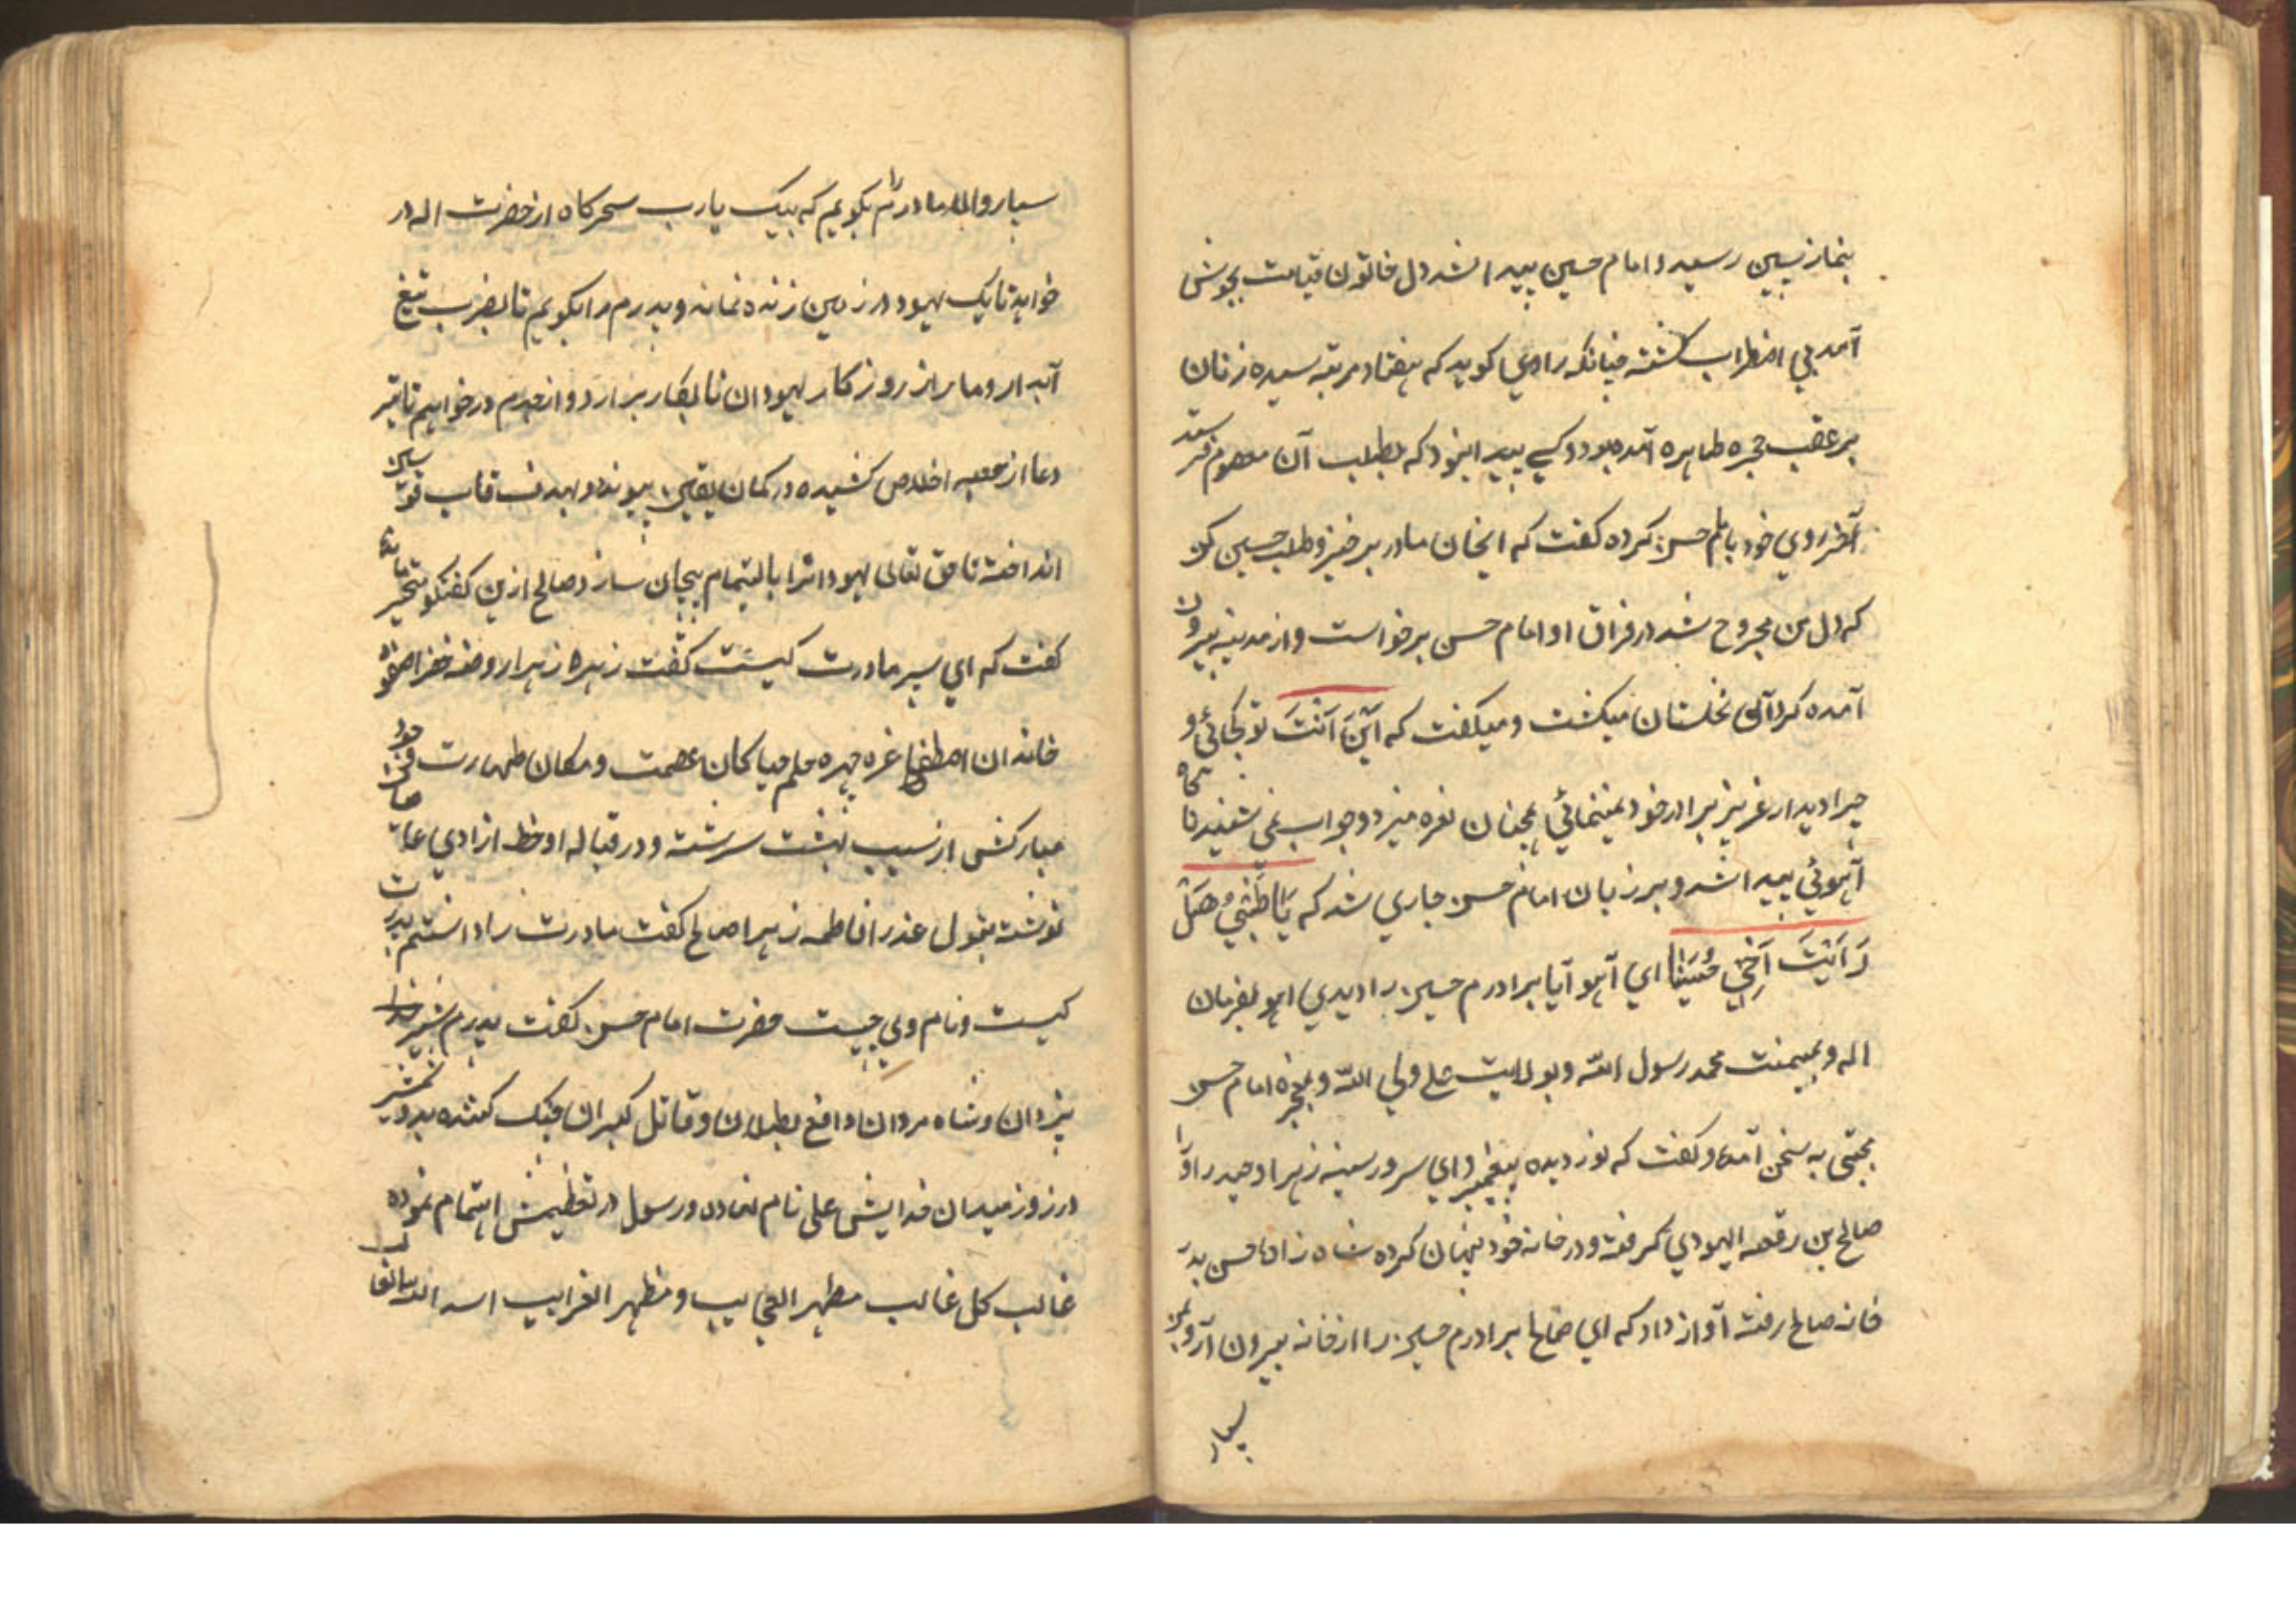 بنماز پسین رسید و امام حسین پیدا نشد دل خاتون قیامت بجوش
آمد بی اضطراب گشته چنانکه راوی کوید که هفتاد مرتبه سیده زنان
بر عقب حجره طاهره آمده بود و کسی پیدا نبود که بطلب آن معصوم فرستد
آخر روی خود بامام حسن کرده کفت که ایجان مادر برخیز و طلب حسین کن
که دل من مجروح شد در فراق او امام حسن برخواست و از مدینه بیرون
آمده کرد آن نخلستان میکشت و میکفت که اَینَ اَنتَ تو کجائی و
چرا دیدار عزیز برادر خود نمینمائی همچنان نعره میزد و جواب نمی شنید ناکاه
آهوئی پیدا شد و بر زبان امام حسن جاری شد که یَا ظَبْیُ هَلْ
رَاَیْتَ اَخِی حُسَیْنًا ای آهو آیا برادرم حسین را دیدی اهو بفرمان
اله و بمیمنت محمد رسول الله و بولایت علی ولی الله و بمعجزه امام حسن
مجتبی به سخن آمد و کفت که نور دیده پیغمبر و ای سرور سینه زهرا و حیدر او را
صالح بن رقعه الیهودی کرفته و در خانه خود پنهان کرده شاه زاده حسن بدر
خانه صالح رفته آواز داد که ای صالح برادرم حسین را از خانه بیرون آر و بمن
بسپار
بسپار والا مادرم را بکویم که بیک یارب سحرکاه از حضرت اله در
خواهد تا یک یهود در زمین زنده نماند و پدرم را بکویم تا بضرب تیغ
آبدار دمار از روزکار یهودان نابکار برآرد و از جدم درخواهیم تا تیر
دعا از جعبه اخلاص کشیده در کمان یقین پیوند و بهدف قاب قوسین
انداخته تا حق تعالی یهودانرا بالتمام بیجان سازد صالح ازین کفتکو متحیر مانده
کفت که ای پسر مادرت کیست کفت زهره زهرا روضه خضرا صفوه
خاندان اصطفا غره چهره حلم حیا کان عصمت و مکان طهارت
مبارکش از سیب بهشت سرشته و در قباله او خط ازادی
نوشته بتول عذرا فاطمه زهرا صالح کفت مادرت را دانستم پدرت
کیست و نام وی چیست حضرت امام حسن کفت پدرم شیر خدا
یزدان و شاه مردان دافع بطلان و قاتل کبران جنک کننده بدو شمشیر
در روز میدان خدایش علی نام نهاده و رسول در تعظیمش اهتمام نموده
غالب کل غالب مظهر العجایب و مظهر الغرایب اسد الله الغالب